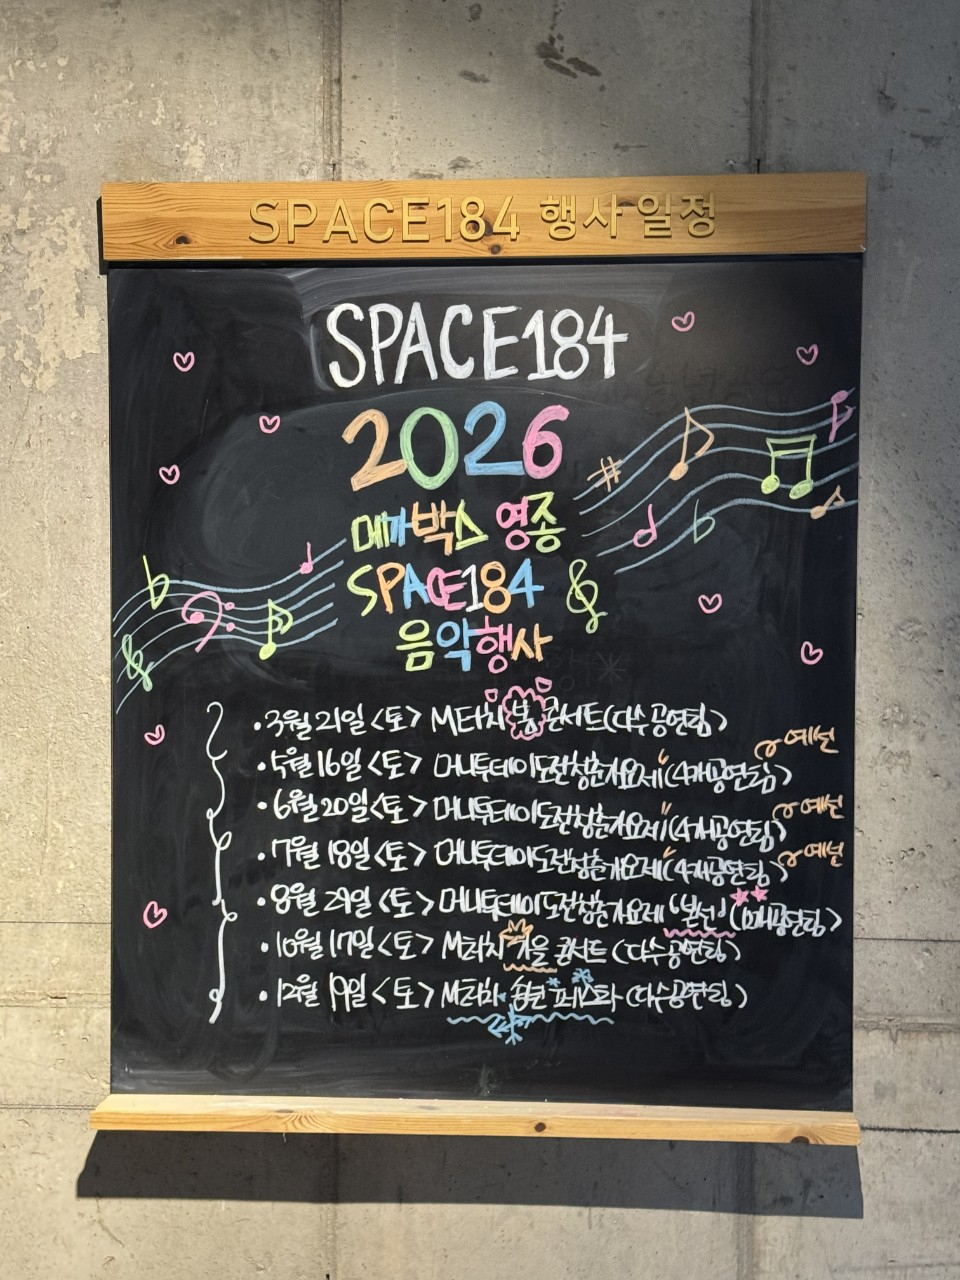 SPACE184 행사일정
SPACE184
2026
메가박스 영종
SPACE184
음악행사
• 3월 21일 <토> M터치 봄 콘서트(다수공연팀)
• 5월 16일 <토> 머니투데이 도전청춘가요제 (4개공연팀) 예선
• 6월 20일 <토> 머니투데이 도전청춘가요제 (4개공연팀) 예선
• 7월 18일 <토> 머니투데이 도전청춘가요제 (4개공연팀) 예선
• 8월 29일 <토> 머니투데이 도전청춘가요제 '본선' (10개공연팀)
• 10월 17일 <토> M터치 가을 콘서트 (다수공연팀)
• 12월 19일 <토> M터치 송년 페스타 (다수공연팀)